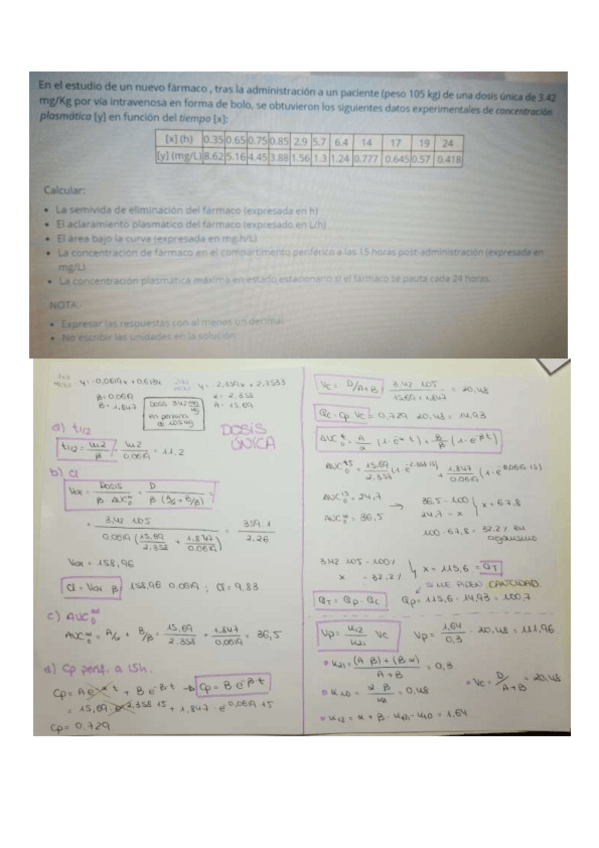 En el estudio de un nuevo fármaco , tras la administración a un paciente (peso 105 kg) de una dosis única de 3.42
mg/Kg por vía intravenosa en forma de bolo, se obtuvieron los siguientes datos experimentales de concentración
plasmática [y] en función del tiempo [x]:
[x] (h) 0.35 0.65 0.75 0.85 2.9 5.7 6.4 14 17 19 24
[y] (mg/L) 8.62 5.16 4.45 3.88 1.56 1.3 1.24 0.777 0.645 0.57 0.418
Calcular:
• La semivida de eliminación del fármaco (expresada en h)
• El aclaramiento plasmático del fármaco (expresado en L/h)
• El área bajo la curva (expresada en mg.h/L)
• La concentración de fármaco en el compartimento periférico a las 15 horas post-administración (expresada en
mg/L)
• La concentración plasmática máxima en estado estacionario si el fármaco se pauta cada 24 horas.
NOTA.-
• Expresar las respuestas con al menos un decimal
• No escribir las unidades en la solución
y = -0,0619x + 0,6134
y = -2,358x + 2,7533
β = 0,0619
B = 1,847
α = 2,358
A = 15,69
Dosis 3.42 mg/kg
en persona
de 105 kg
DOSIS
ÚNICA
a) t1/2
t1/2 = ln2/β = ln2/0.0619 = 11.2
b) Cl
= 3,42 · 105 / 0,0619 (15,69/2,358 + 1,847/0,0619) = 359.1/2.26
= 158,96
158,96 · 0,0619 ; Cl = 9,83
c) AUC0∞
AUC0∞ = A/α + B/β = 15,69/2.358 + 1,847/0.0619 = 36,5
d) Cp perif. a 15h.
Cp = A e-αt + B e-βt → Cp = B e-βt
= 15,69 · e-2,358·15 + 1,847 · e-0,0619·15
Cp = 0,729
Vc = D/A+B = 3.42 · 105 / 15,69 + 1,847 = 20,48
Qc = Cp · Vc = 0,729 · 20,48 = 14,93
AUC0t = A/α (1-e-αt) + B/β (1-e-βt)
AUC015 = 15,69/2,358 (1-e-2.358·15) + 1,847/0.0619 (1-e-0.0619·15)
AUC015 = 24,7
AUC0∞ = 36,5
36,5 - 100
24,7 - x
x = 67,8
100 - 67,8 = 32.2% en
organismo
3.42 · 105 - 100%
x - 32,2%
x = 115,6 = QT
SI ME PIDEN CANTIDAD.
QT = Qp - Qc
Qp = 115,6 - 14,93 = 100,7
Vp = k12/k21 · Vc
Vp = 1,64/0,3 · 20,48 = 111,96
• k21 = (A · β) + (B · α) / A + B = 0,3
• k10 = α · β / k21 = 0,48
• Vc = D/A+B = 20,48
• k12 = α + β - k21 - k10 = 1,64